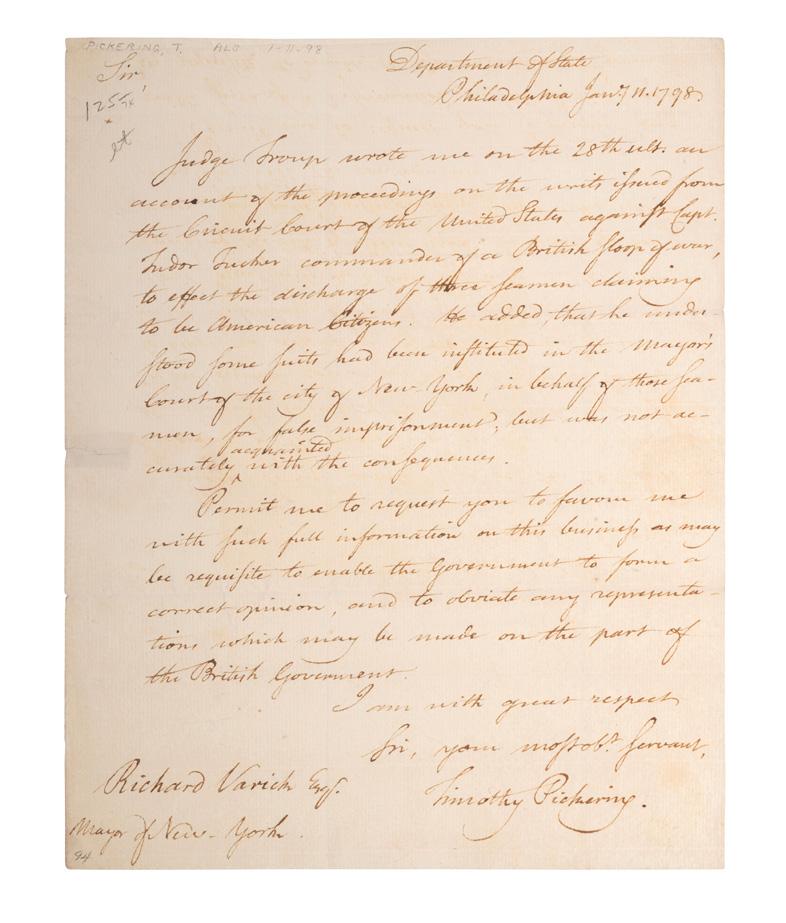 PICKERING, T. ALS 1-11-98
Department of State
Sir,
Philadelphia Jany 11. 1798.
125
Judge Troup wrote me on the 28th ult. an
account of the proceedings on the writs issued from
the Circuit Court of the United States against Capt.
Tudor Tucker commander of a British sloop of war,
to effect the discharge of three seamen claiming
to be American Citizens. He added, that he under-
stood some suits had been instituted in the Mayor's
Court of the city of New-York, in behalf of those sea-
men, for false imprisonment; but was not ac-
acquainted
curately ^ with the consequences.
Permit me to request you to favour me
with such full information on this business as may
be requisite to enable the Government to form a
correct opinion, and to obviate any representa-
tions which may be made on the part of
the British Goverment.
I am with great respect
Sir, your most obt. servant,
Timothy Pickering.
Richard Varick Esqr.
Mayor of New-York.
94